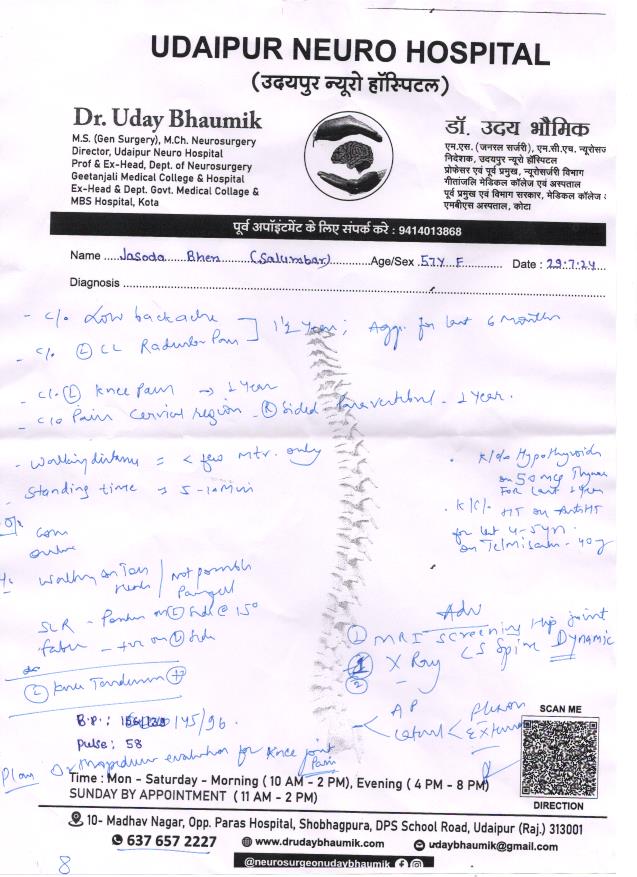 UDAIPUR NEURO HOSPITAL
(उदयपुर न्यूरो हॉस्पिटल)
Dr. Uday Bhaumik
M.S. (Gen Surgery), M.Ch. Neurosurgery
Director, Udaipur Neuro Hospital
Prof & Ex-Head, Dept. of Neurosurgery
Geetanjali Medical College & Hospital
Ex-Head & Dept. Govt. Medical Collage &
MBS Hospital, Kota
डॉ. उदय भौमिक
एम.एस. (जनरल सर्जरी), एम.सी.एच. न्यूरोसर्ज
निदेशक, उदयपुर न्यूरो हॉस्पिटल
प्रोफेसर एवं पूर्व प्रमुख, न्यूरोसर्जरी विभाग
गीतांजलि मेडिकल कॉलेज एवं अस्पताल
पूर्व प्रमुख एवं विभाग सरकार, मेडिकल कॉलेज
एमबीएस अस्पताल, कोटा
पूर्व अपॉइंटमेंट के लिए संपर्क करे : 9414013868
Name Jasoda Bhen (Salumbar) Age/Sex 57Y F Date : 29.7.24
Diagnosis
- c/o Low backache
- c/o (L) LL Radicular Pain
1 1/2 Year; Agg. for last 6 months
- c/o (L) Knee Pain → 1 Year
- c/o Pain Cervical region - (R) Sided Paravertebral - 1 Year.
- Walking distance = < few mtr. only
- Standing time → 5-10 Min
. K/c/o Hypothyroid
on 50 mcg
For last 1 Year
. K/c/o HT on AntiHT
for last 4-5 yr.
on Telmisartan - 40
O/E
Walking on Toes
Heels / Not possible
SLR - on (L) Side @ 15°
Faber - +ve on (L) Side
(L) Knee Tenderness (+)
Adv
(1) MRI Screening Hip joint
(2) X Ray LS Spine Dynamic
AP
Lateral < Flexion
Extension
B.P.: 145/96.
Pulse: 58
Plan evaluation for Knee joint
Pain
SCAN ME
DIRECTION
Time : Mon - Saturday - Morning ( 10 AM - 2 PM), Evening ( 4 PM - 8 PM)
SUNDAY BY APPOINTMENT ( 11 AM - 2 PM)
10- Madhav Nagar, Opp. Paras Hospital, Shobhagpura, DPS School Road, Udaipur (Raj.) 313001
637 657 2227 www.drudaybhaumik.com udaybhaumik@gmail.com
@neurosurgeonudaybhaumik
8